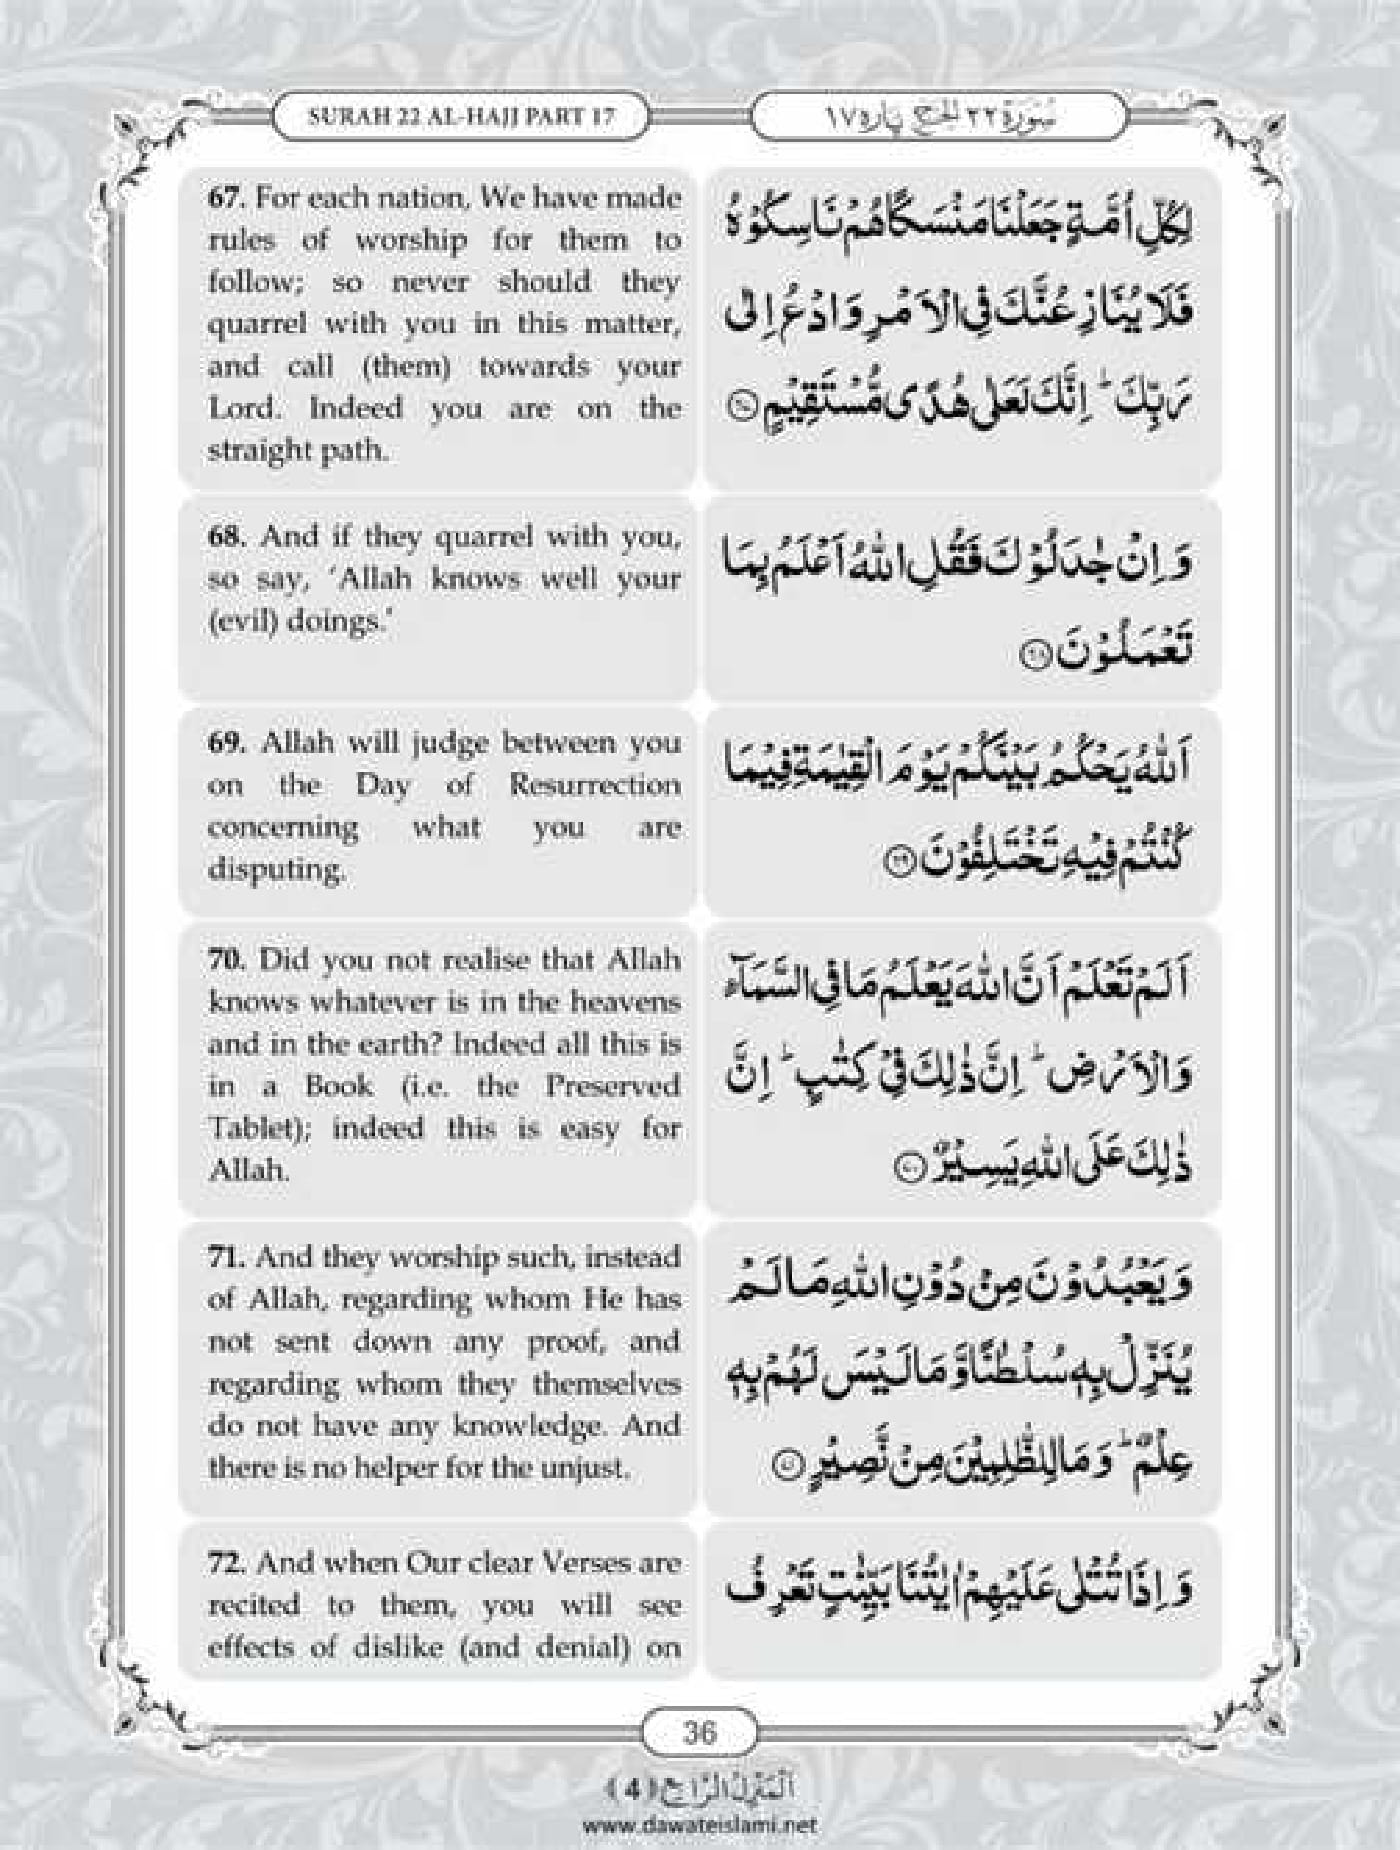 SURAH 22 AL-HAJJ PART 17
سُوْرَۃ ٢٢ الحج پارہ ١٧
67. For each nation, We have made
rules of worship for them to
follow; so never should they
quarrel with you in this matter,
and call (them) towards your
Lord. Indeed you are on the
straight path.
لِكُلِّ اُمَّةٍ جَعَلْنَا مَنْسَكًا هُمْ نَاسِكُوْهُ
فَلَا يُنَازِعُنَّكَ فِی الْاَمْرِ وَ ادْعُ اِلٰى
رَبِّكَ ؕ اِنَّكَ لَعَلٰى هُدًى مُّسْتَقِيْمٍ ﴿٦٧﴾
68. And if they quarrel with you,
so say, ‘Allah knows well your
(evil) doings.’
وَ اِنْ جٰدَلُوْكَ فَقُلِ اللّٰهُ اَعْلَمُ بِمَا
تَعْمَلُوْنَ ﴿٦٨﴾
69. Allah will judge between you
on the Day of Resurrection
concerning what you are
disputing.
اَللّٰهُ يَحْكُمُ بَيْنَكُمْ يَوْمَ الْقِيٰمَةِ فِيْمَا
كُنْتُمْ فِيْهِ تَخْتَلِفُوْنَ ﴿٦٩﴾
70. Did you not realise that Allah
knows whatever is in the heavens
and in the earth? Indeed all this is
in a Book (i.e. the Preserved
Tablet); indeed this is easy for
Allah.
اَلَمْ تَعْلَمْ اَنَّ اللّٰهَ يَعْلَمُ مَا فِی السَّمَآءِ
وَ الْاَرْضِ ؕ اِنَّ ذٰلِكَ فِیْ كِتٰبٍ ؕ اِنَّ
ذٰلِكَ عَلَى اللّٰهِ يَسِيْرٌ ﴿٧٠﴾
71. And they worship such, instead
of Allah, regarding whom He has
not sent down any proof, and
regarding whom they themselves
do not have any knowledge. And
there is no helper for the unjust.
وَ يَعْبُدُوْنَ مِنْ دُوْنِ اللّٰهِ مَا لَمْ
يُنَزِّلْ بِهٖ سُلْطٰنًا وَّ مَا لَيْسَ لَهُمْ بِهٖ
عِلْمٌ ؕ وَ مَا لِلظّٰلِمِيْنَ مِنْ نَّصِيْرٍ ﴿٧١﴾
72. And when Our clear Verses are
recited to them, you will see
effects of dislike (and denial) on
وَ اِذَا تُتْلٰى عَلَيْهِمْ اٰيٰتُنَا بَيِّنٰتٍ تَعْرِفُ
36
اَلْمَنْزِلُ الرَّابِع ﴿4﴾
www.dawateislami.net